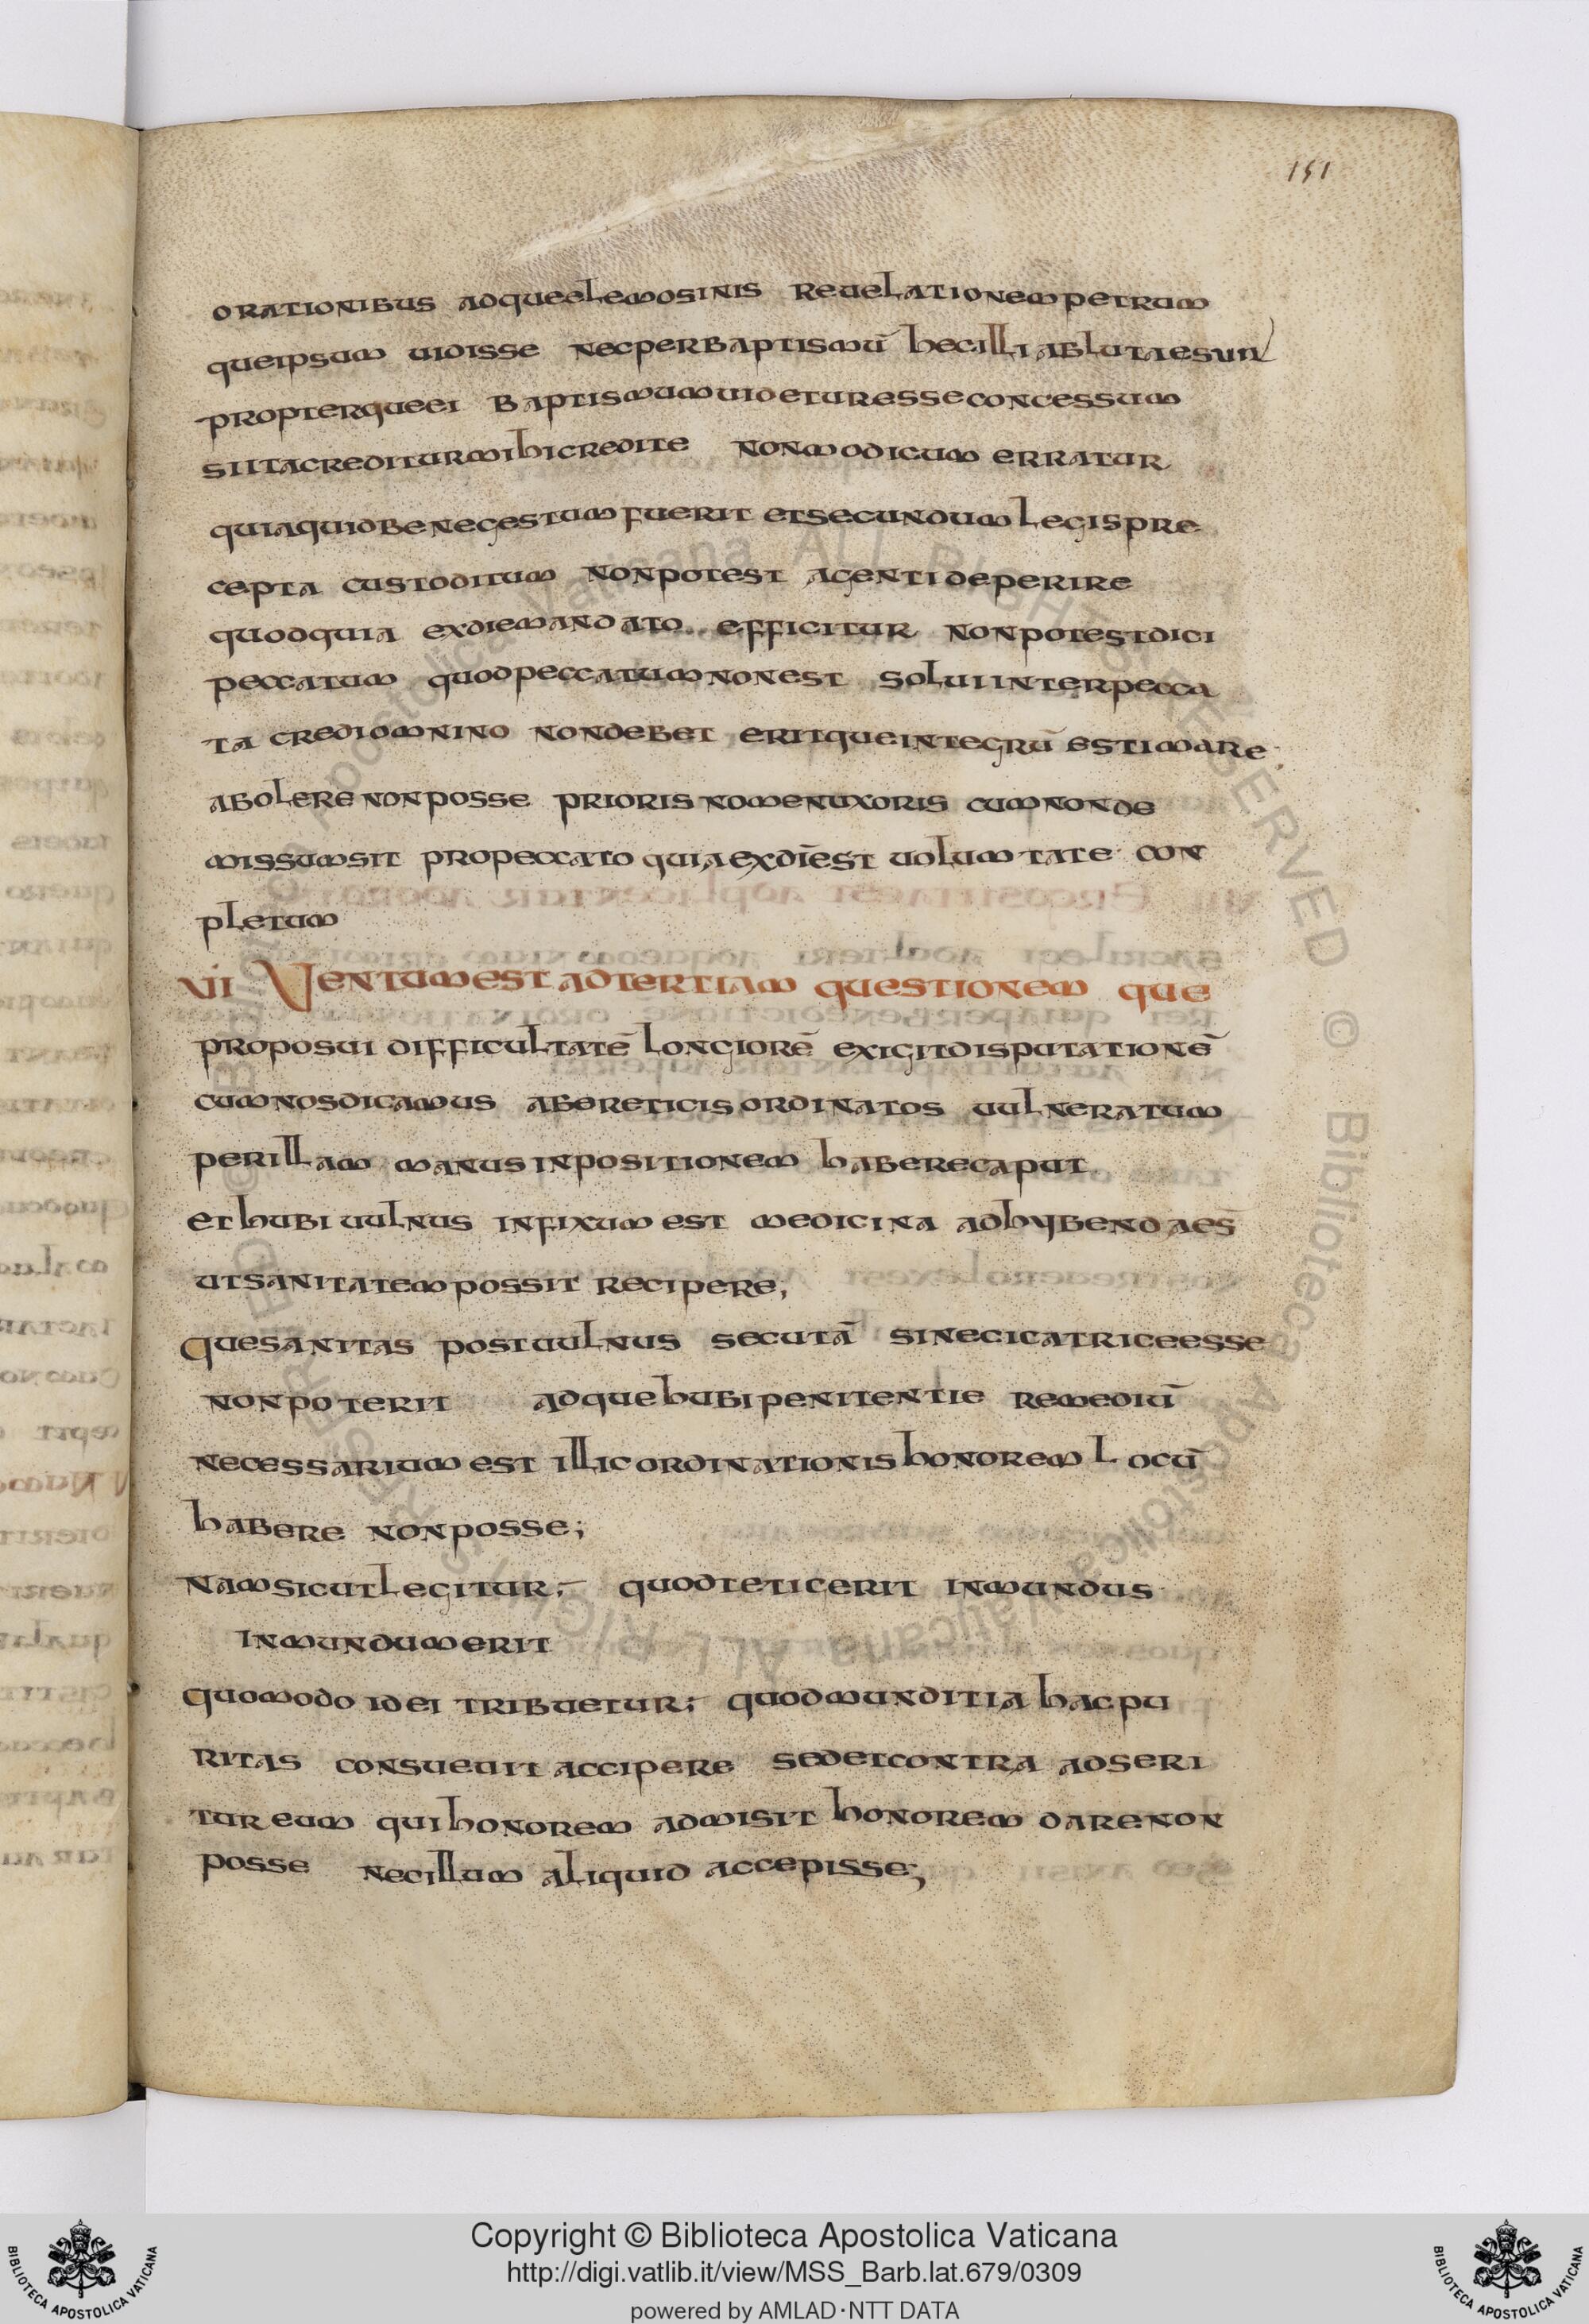 151
orationibus adqueelemosinis reuelationempetrum
queipsum uidisse necperbaptismū hecilliablutaesunt
propterqueei baptismumuideturesseconcessum
siitacrediturmihicredite nonmodicum erratur
quiaquidbenegestumfuerit etsecundumlegispre
cepta custoditum nonpotest agentideperire
quodquia exdiemandato efficitur nonpotestdici
peccatum quodpeccatumnonest soluiinterpecca
ta crediomnino nondebet eritqueintegrū estimare
abolerenonposse prioris nomenuxoris cumnonde
missumsit propeccato quiaexdīest uolumtate con
pletum
VI Ventumest adtertiam questionem que
proposui difficultatē longiorē exigitdisputationē
cumnosdicamus abereticis ordinatos uulneratum
perillam manusinpositionem haberecaput
et hubi uulnus infixum est medicina adhybendaes̄
utsanitatempossit recipere;
quesanitas postuulnus secutā sinecicatriceesse
nonpoterit adquehubipenitentie remediū
necessarium est illicordinationishonorem locū
habere nonposse;
namsicutlegitur; quodtetigerit inmundus
inmundumerit
quomodo idei tribuetur; quodmunditia hacpu
ritas consueuit accipere sedetcontra adseri
tur eum quihonorem admisit honorem darenon
posse necillum aliquid accepisse;
Copyright © Biblioteca Apostolica Vaticana
http://digi.vatlib.it/view/MSS_Barb.lat.679/0309
powered by AMLAD·NTT DATA
BIBLIOTECA APOSTOLICA VATICANA
BIBLIOTECA APOSTOLICA VATICANA